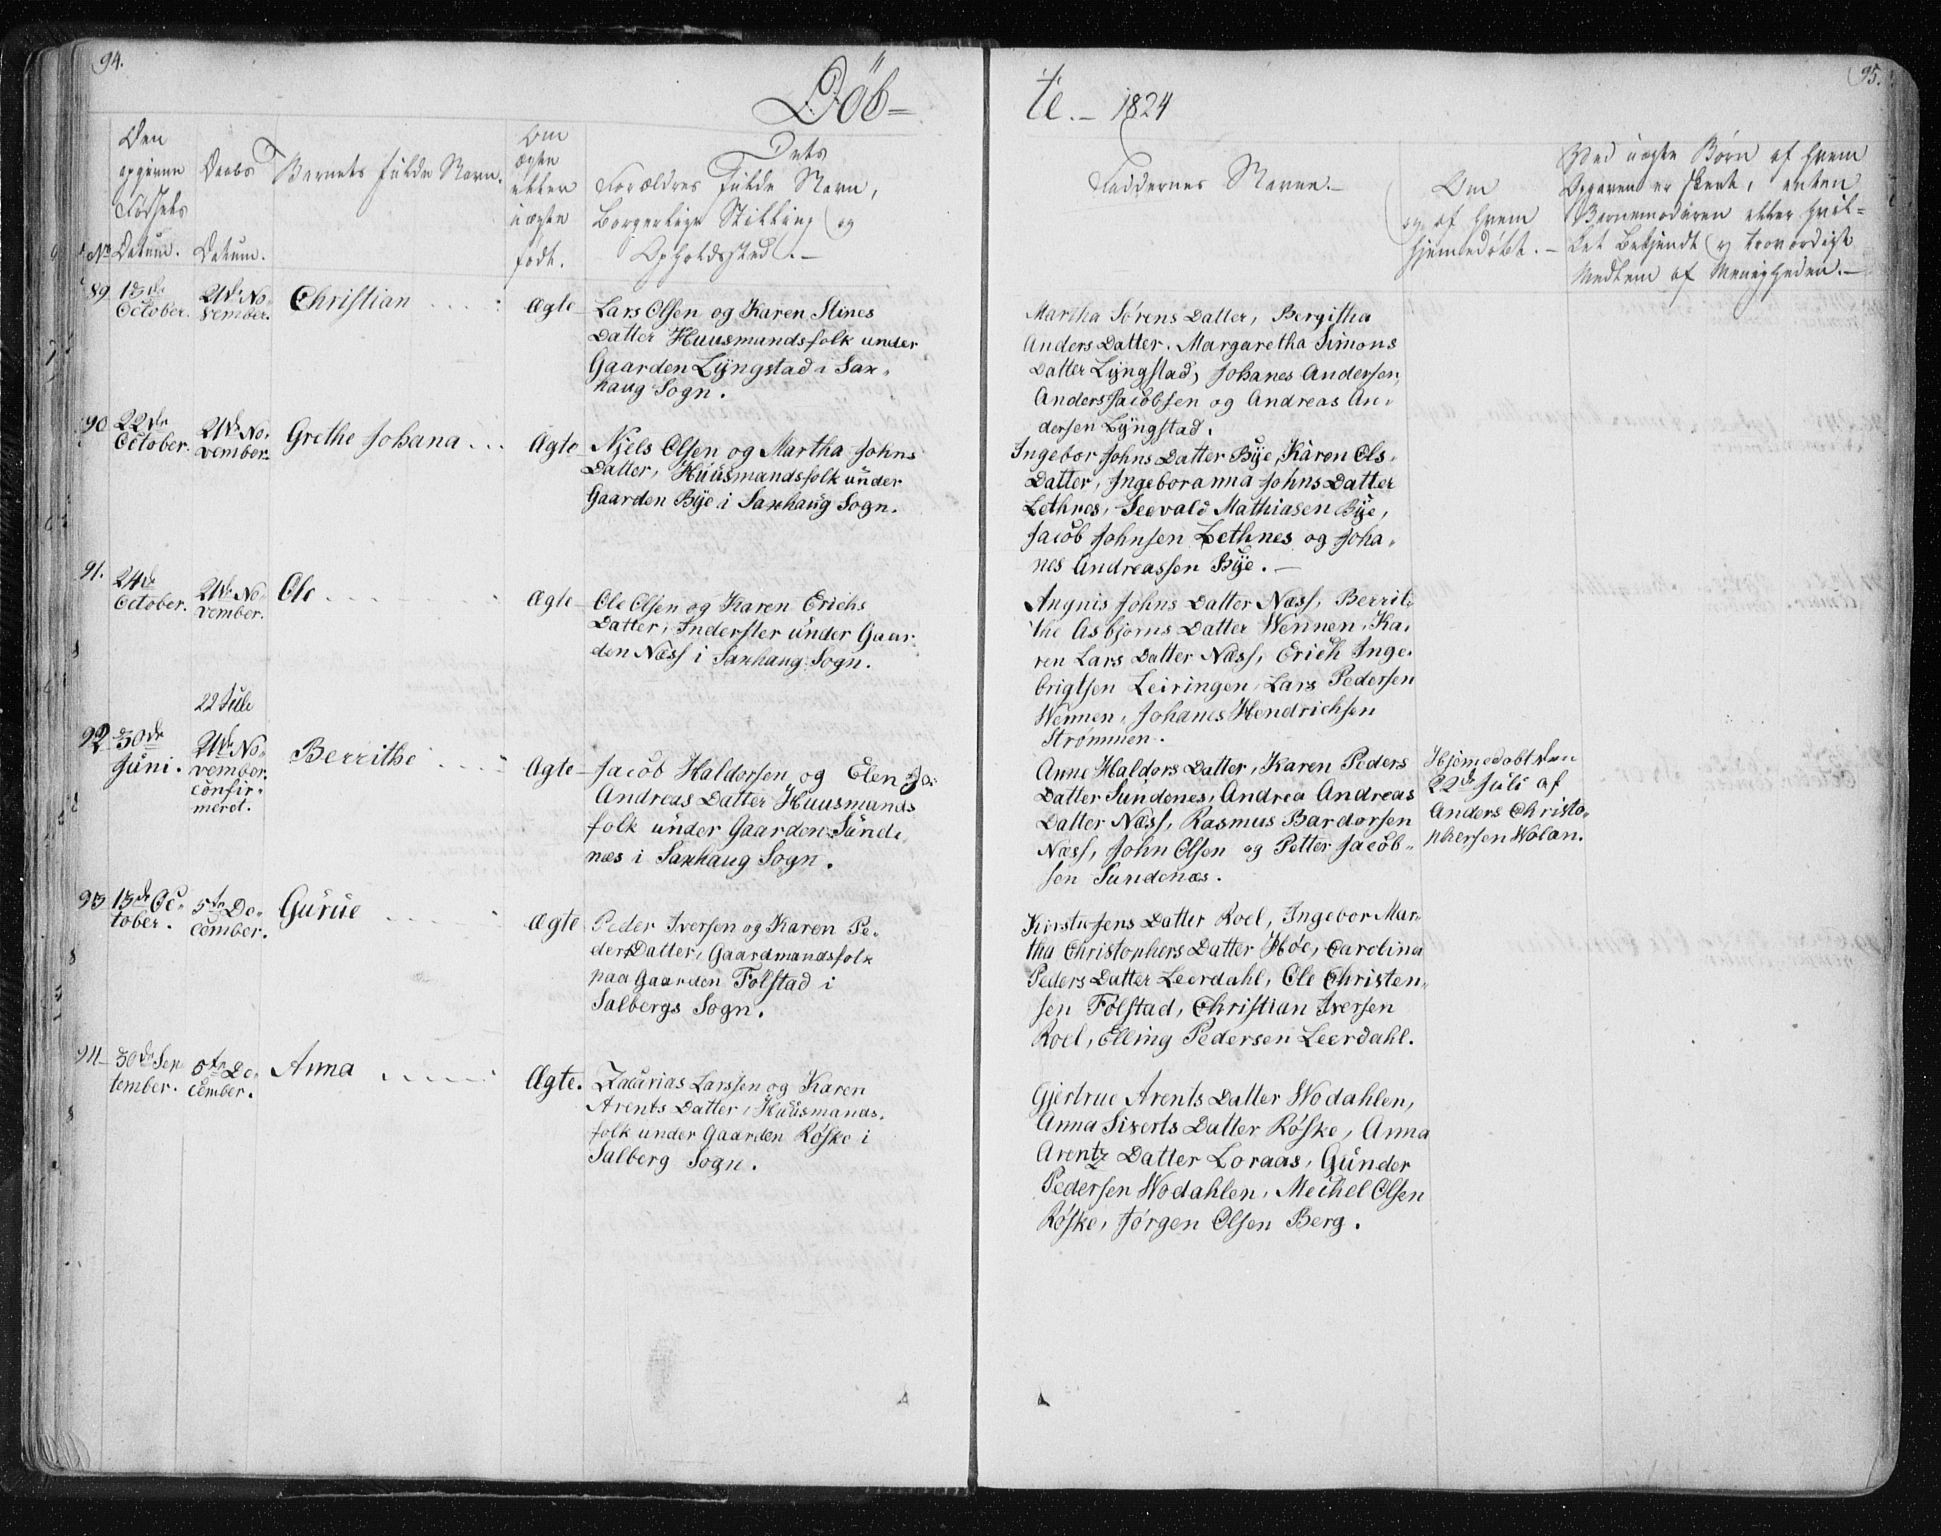 94.
Döb-
te. - 1824
95.
Den
opgivne
Födsels
No Datum.
Daabs
Datum.
Barnets fulde Navn.
Om
ægte
eller
uægte
födt.
Dets
Forældres fulde Navn,
Borgerlige Stilling og
Opholdssted. -
Faddernes Navne. -
Om
og af hvem
hjemmedöbt. -
Ved uægte Börn af hvem
Opgaven er skeet, enten
Barnemoderen eller hvil-
det bekjendt og troværdigt
Medlem af Menigheden. -
89
October.
21de No-
vember.
Christian
Ægte
Lars Olsen og Karen Stines
Datter Huusmandsfolk under
Gaarden Lÿngstad i Sax-
haug Sogn.
Martha Sørens Datter, Bergitha
Anders Datter. Margaretha Simons
Datter Lÿngstad, Johanes Andersen,
Anders Jacobsen og Andreas An-
dersen Lÿngstad.
90
22de
October.
21de No-
vember.
Grethe Johana
Ægte
Niels Olsen og Martha Johns
Datter, Huusmandsfolk under
Gaarden Bÿe i Saxhaug Sogn.
Ingebor Johns Datter Bÿe, Karen Ols-
Datter, Ingeboranna Johns Datter
Lethnes, Seevald Mathiasen Bÿe,
Jacob Johnsen Lethnes og Joha-
nes Andreassen Bÿe. -
91.
24de
October.
21de No-
vember.
Ole
Ægte
Ole Olsen og Karen Erichs
Datter, Inderster under Gaar-
den Næss i Saxhaug Sogn.
Angnis Johns Datter Næss, Berrit-
the Asbjørns Datter Wennen, Ka-
ren Lars Datter Næss, Erich Inge-
brigtsen Leiringen, Lars Pedersen
Wennen, Johanes Hendrichsen
Strømmen.
92
30de
Juni.
22 Julii
21de No-
vember.
confir-
meret.
Berrithe
Ægte
Jacob Haldorsen og Elen
Andreas Datter Huusmands
folk under Gaarden Sunde-
næs i Saxhaug Sogn.
Anne Haldors Datter, Karen Peders
Datter Sundenes, Andrea Andreas
Datter Næss, Rasmus Bardorsen
Næss, John Olsen og Petter Jacob-
sen Sundenæs.
Hjemedøbt den
22de Juli af
Anders Christo-
phersen Wolan.
93
13de Oc-
tober.
5te De-
cember.
Gurue
Ægte
Peder Iversen og Karen Pe-
ders Datter, Gaardmandsfolk
paa Gaarden Folstad i
Salbergs Sogn.
Kirsti Jens Datter Roel, Ingebor Mar-
tha Christophers Datter Hoe, Carolina
Peders Datter Leerdahl, Ole Christen-
sen Folstad, Christian Iversen
Roel, Elling Pedersen Leerdahl.
94
30de Sep
tember.
5te De-
cember.
Anna
Ægte.
Zacarias Larssen og Karen
Arents Datter, Huusmands-
folk under Gaarden Røske i
Salberg Sogn.
Gjertrue Arents Datter Wodahlen,
Anna Siverts Datter Røske, Anna
Arentz Datter Loraas, Gunder
Pedersen Wodahlen, Mechel Olsen
Røske, Jörgen Olsen Berg.